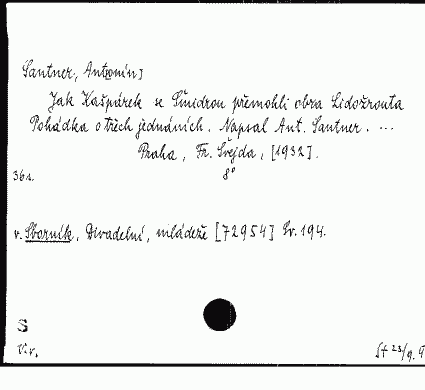 Santner, Antonín]
Jak Kašpárek se Šmidrou přemohli obra Lidožrouta
Pohádka o třech jednáních. Napsal Ant. Santner. ...
Praha, Fr. Švejda, [1932].
36 s. 8°
v. Sborník, Divadelní, mládeže [72954] Sv. 194.
S
V.v. St 23/9.